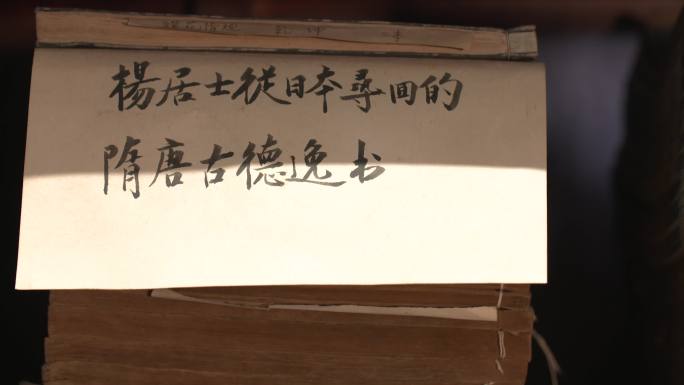 楊居士從日本尋回的
隋唐古德逸书